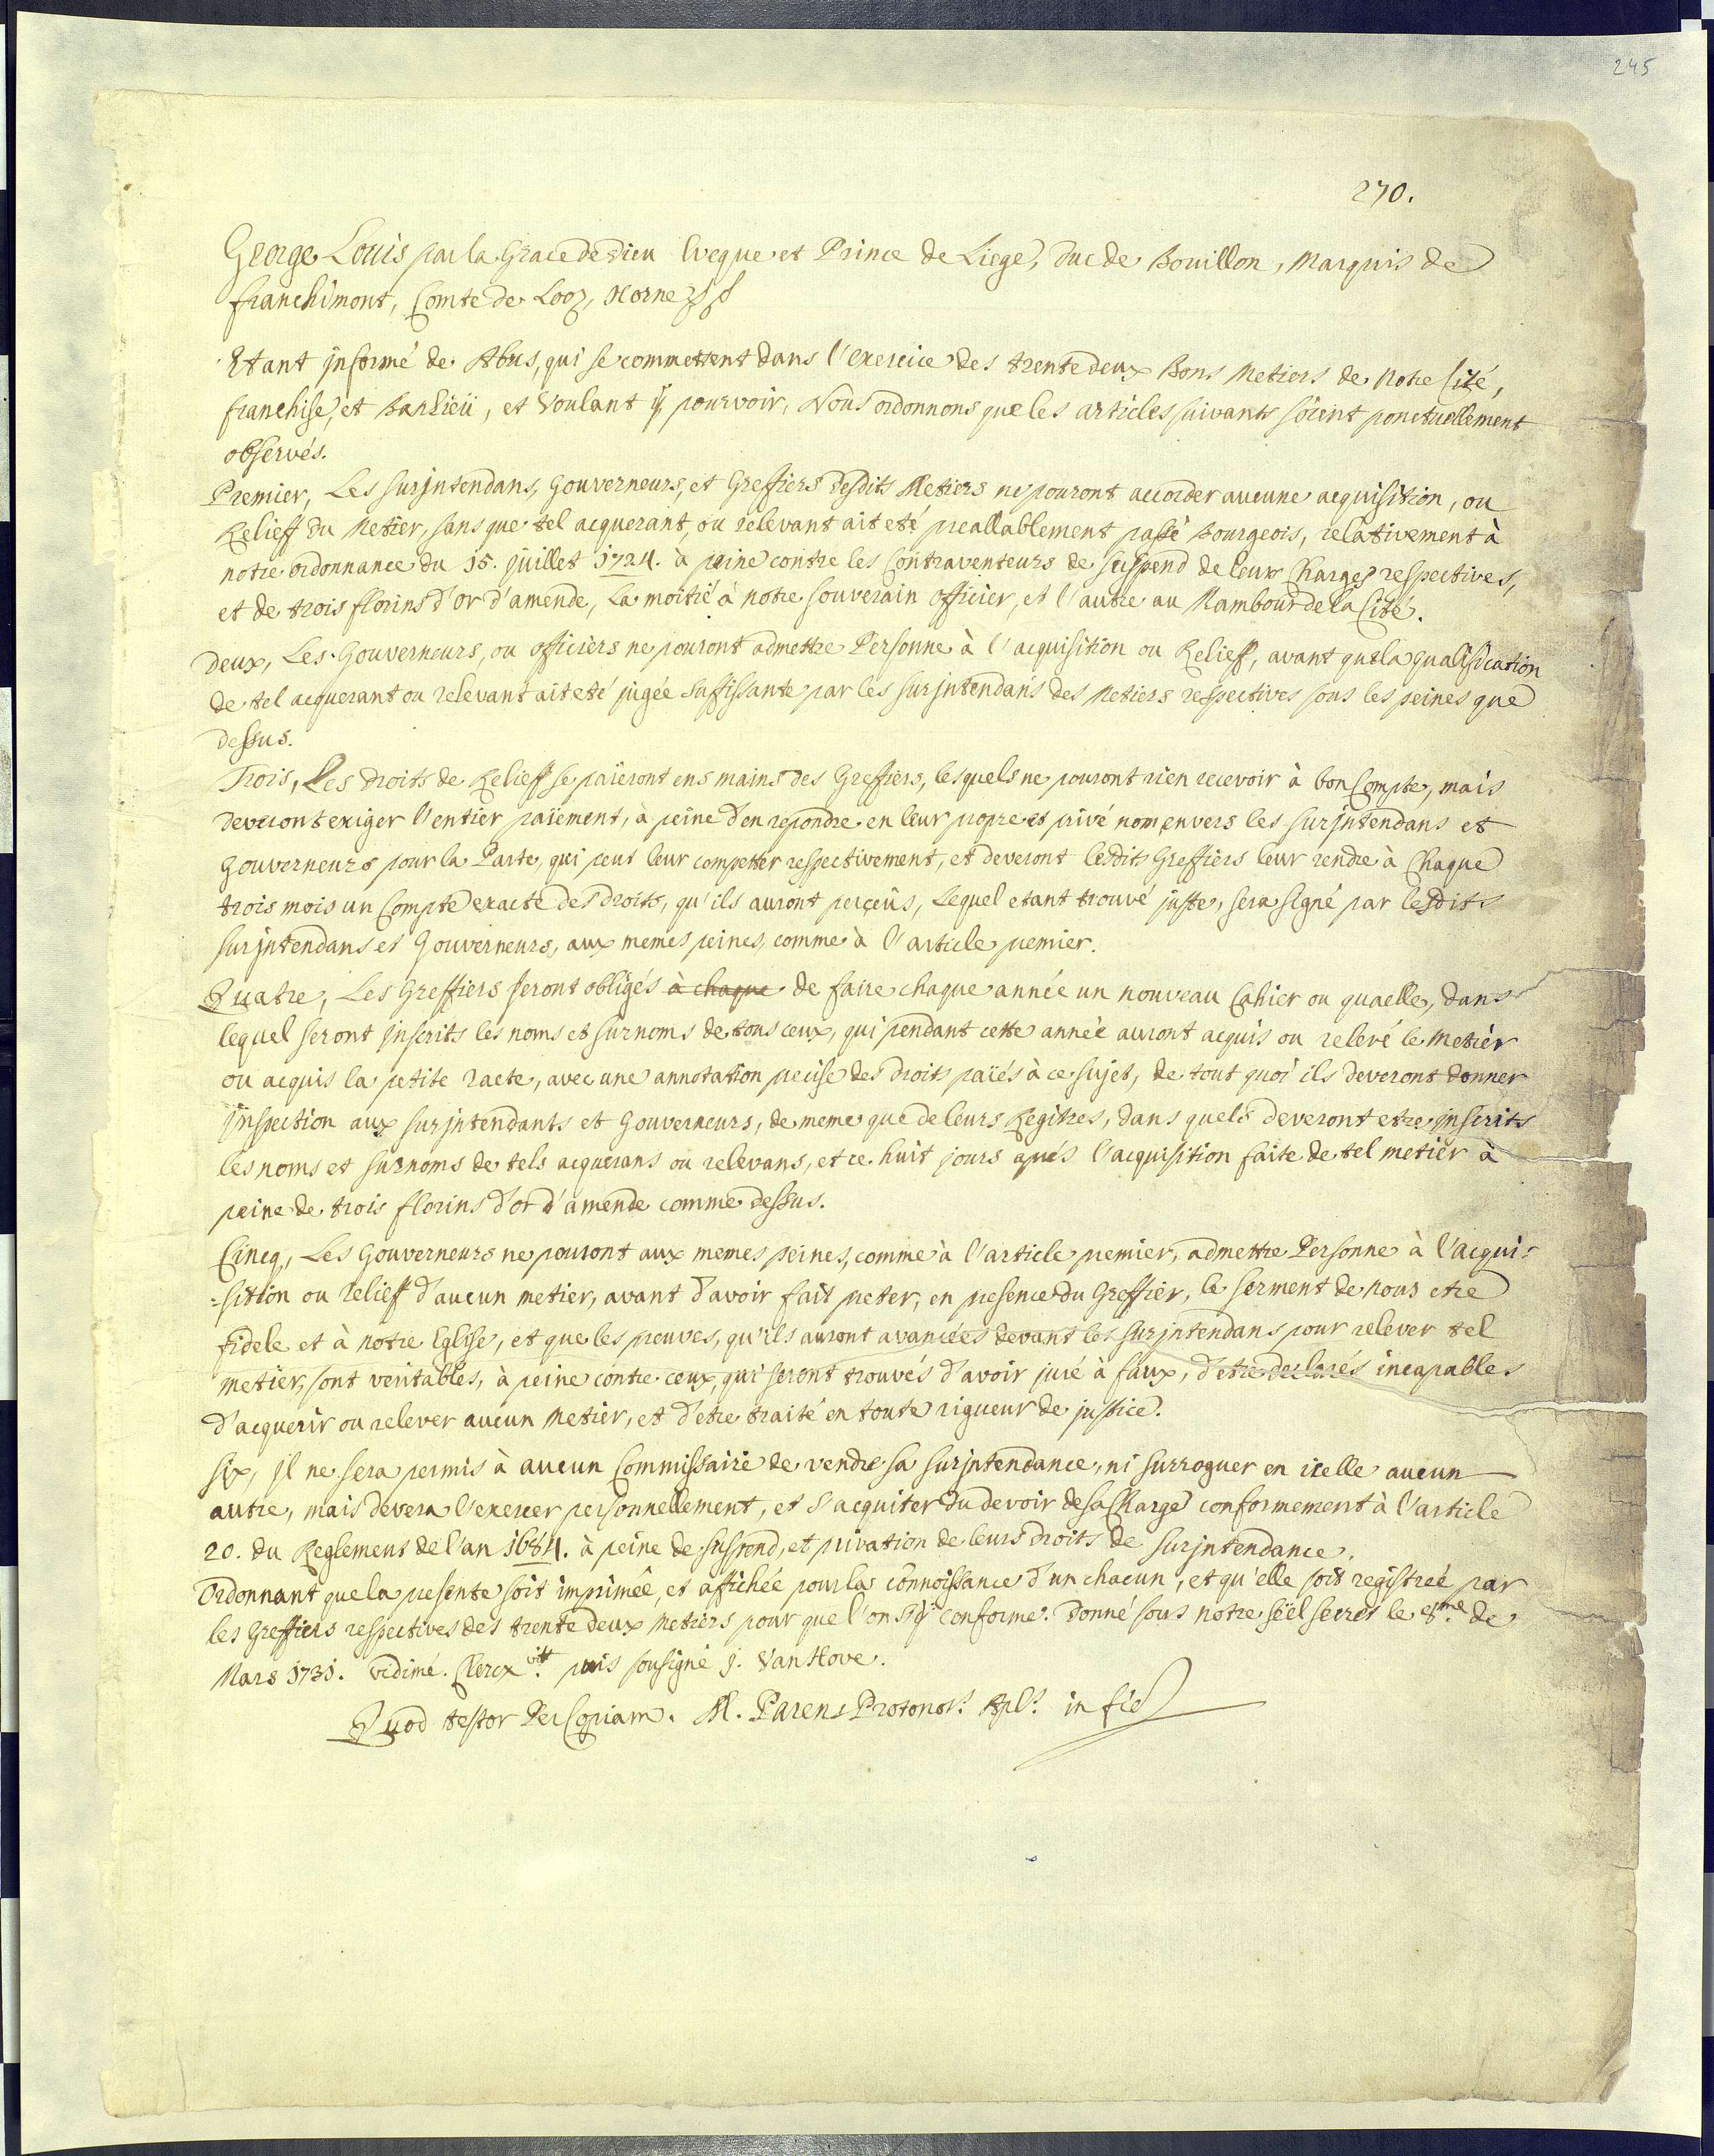 245
270.
George Louis par la Grace de Dieu Eveque et Prince de Liege, Duc de Bouillon, Marquis de
franchimont, Comte de Looz, Horne
Etant informé de Abus, qui se commettent dans l'exercice des trente deux Bons Metiers de Notre Cité,
franchise, et Banlieü, et Voulant ÿ pourvoir, Nous ordonnons que les articles suivants söient ponctuellement
observés.
Premier, Les Surjntendans, Gouverneurs, et Greffiers desdits Metiers ne pouront accorder aucune acquisition, ou
Relieff du Metier, sans que tel acquerant, ou relevant ait eté preallablement passé Bourgeois, relativement à
notre ordonnance du 15. juillet 1724. à peine contre les Contraventeurs de suspend de leurs Charges respectives,
et de trois florins d'or d'amende, La moitié à notre souverain officier, et l'autre au Rambour de la Cité.
Deux, Les Gouverneurs, ou officiers ne pouront admettre Personne à l'acquisition ou Relieff, avant que la qualification
de tel acquerant ou relevant ait eté jugée suffissante par les surjntendans des Metiers respectives sous les peines que
dessus.
Trois, Les droits de Relieff se païeront ens mains des Greffiers, lesquels ne pouront rien recevoir à bon Compte, mais
deveront exiger l'entier païement, à peine d'en repondre en leur propre et privé nom envers les surjntendans et
Gouverneurs pour la Parte, qui peut leur competter respectivement, et deveront lesdits Greffiers leur rendre à Chaque
trois mois un Compte exacte des droits, qu'ils auront perçeüs, Lequel etant trouvé juste, sera signé par lesdits
surjntendans et Gouverneurs, aux memes peines, comme à l'article premier.
Quatre, Les Greffiers seront obligés à chaque de faire chaque année un nouveau Cahier ou quaelle, dans
lequel seront jnscrits les noms et surnoms de tous ceux, qui pendant cette année auront acquis ou relevé le Metier
ou acquis la petite racte, avec une annotation precise des droits païés à ce sujet, de tout quoi ils deveront donner
jnspection aux surjntendants et Gouverneurs, de meme que de leurs Regitres, dans quels deveront etre jnscrits
les noms et surnoms de tels acquerans ou relevans, et ce huit jours aprés l'acquisition faite de tel metier à
peine de trois florins d'or d'amende comme dessus.
Cincq, Les Gouverneurs ne pouront aux memes peines, comme à l'article premier, admettre Personne à l'acqui=
=sition ou relieff d'aucun metier, avant d'avoir fait preter, en presence du Greffier, le serment de nous etre
fidele et à notre Eglise, et que les preuves, qu'ils auront avancées devant les surjntendans pour relever tel
metier, sont veritables, à peine contre ceux, qui seront trouvés d'avoir juré à faux, d'etre declarés incapables
d'acquerir ou relever aucun Metier, et d'etre traité en toute rigueur de justice.
six, jl ne sera permis à aucun Commissaire de vendre sa surjntendance, ni surroguer en icelle aucun
autre, mais devera l'exercer personnellement, et s'acquiter du devoir de sa Charge conformement à l'article
20. du Reglement de l'an 1684. à peine de suspend, et privation de leurs droits de surjntendance.
Ordonnant que la presente soit imprimée, et affichée pour la connoissance d'un chacun, et qu'elle soit registreé par
les Greffiers respectives des trente deux Metiers pour que l'on s'ÿ conforme. Donné sous notre séel secret le 8.me de
Mars 1731. vidimé. Clercx vtt. puis sousigné j. Van Hove.
Quod testor Per Copiam. M. Parens Protonot. Apl. in fid